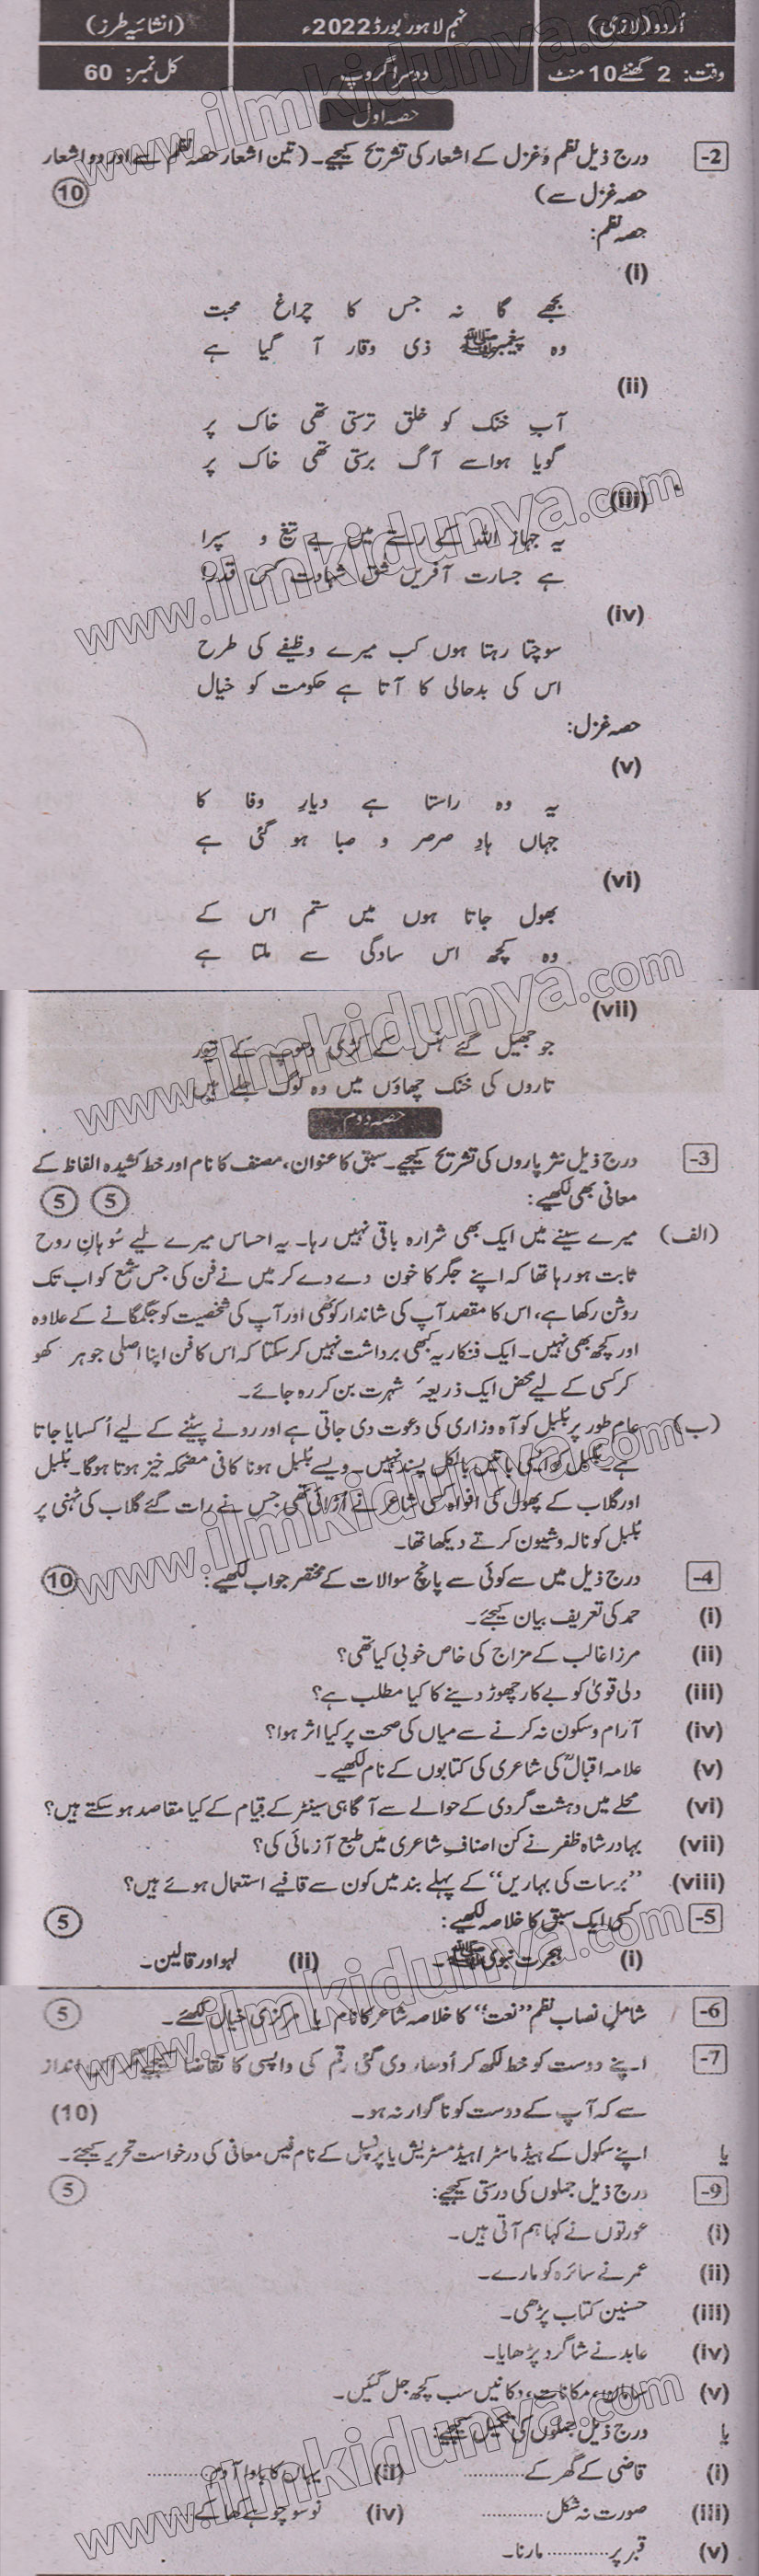 اُردو (لازمی) نہم لاہور بورڈ 2022ء (انشائیہ طرز)
وقت: 2 گھنٹے 10 منٹ دوسرا گروپ کل نمبر: 60
حصہ اول
2- درج ذیل نظم و غزل کے اشعار کی تشریح کیجیے۔ (تین اشعار حصہ نظم سے اور دو اشعار
حصہ غزل سے) 10
حصہ نظم:
(i)
بجھے گا نہ جس کا چراغِ محبت
وہ پیغمبرﷺ ذی وقار آ گیا ہے
(ii)
آبِ خنک کو خلق ترستی تھی خاک پر
گویا ہوا سے آگ برستی تھی خاک پر
(iii)
یہ جہاز اللہ کے رستے میں بے تیغ و سپر!
ہے جسارت آفریں شوقِ شہادت کس قدر!
(iv)
سوچتا رہتا ہوں کب میرے وظیفے کی طرح
اس کی بدحالی کا آتا ہے حکومت کو خیال
حصہ غزل:
(v)
یہ وہ راستا ہے دیارِ وفا کا
جہاں بادِ صرصر و صبا ہو گئی ہے
(vi)
بھول جاتا ہوں میں ستم اس کے
وہ کچھ اس سادگی سے ملتا ہے
(vii)
جو جھیل گئے ہنس کے کڑی دھوپ کے تیور
تاروں کی خنک چھاؤں میں وہ لوگ جلے ہیں
حصہ دوم
3- درج ذیل نثر پاروں کی تشریح کیجیے۔ سبق کا عنوان، مصنف کا نام اور خط کشیدہ الفاظ کے
معانی بھی لکھیے: 5 5
(الف) میرے سینے میں ایک بھی شرارہ باقی نہیں رہا۔ یہ احساس میرے لیے سُوہانِ روح
ثابت ہو رہا تھا کہ اپنے جگر کا خون دے دے کر میں نے فن کی جس شمع کو اب تک
روشن رکھا ہے، اس کا مقصد آپ کی شاندار کوٹھی اور آپ کی شخصیت کو جگمگانے کے علاوہ
اور کچھ بھی نہیں۔ ایک فنکار یہ کبھی برداشت نہیں کر سکتا کہ اس کا فن اپنا اصلی جوہر کھو
کر کسی کے لیے محض ایک ذریعہٴ شہرت بن کر رہ جائے۔
(ب) عام طور پر بُلبل کو آہ وزاری کی دعوت دی جاتی ہے اور رونے پیٹنے کے لیے اُکسایا جاتا
ہے۔ بُلبل کو ایسی باتیں بالکل پسند نہیں۔ ویسے بُلبل ہونا کافی مضحکہ خیز ہوتا ہوگا۔ بُلبل
اور گلاب کے پھول کی افواہ کسی شاعر نے اُڑائی تھی جس نے رات گئے گلاب کی ٹہنی پر
بُلبل کو نالہ و شیون کرتے دیکھا تھا۔
4- درج ذیل میں سے کوئی سے پانچ سوالات کے مختصر جواب لکھیے: 10
(i) حمد کی تعریف بیان کیجئے۔
(ii) مرزا غالب کے مزاج کی خاص خوبی کیا تھی؟
(iii) دلی قویٰ کو بے کار چھوڑ دینے کا کیا مطلب ہے؟
(iv) آرام و سکون نہ کرنے سے میاں کی صحت پر کیا اثر ہوا؟
(v) علامہ اقبالؒ کی شاعری کی کتابوں کے نام لکھیے۔
(vi) محلے میں دہشت گردی کے حوالے سے آگاہی سینٹر کے قیام کے کیا مقاصد ہو سکتے ہیں؟
(vii) بہادر شاہ ظفر نے کن اصنافِ شاعری میں طبع آزمائی کی؟
(viii) ”برسات کی بہاریں“ کے پہلے بند میں کون سے قافیے استعمال ہوئے ہیں؟
5- کسی ایک سبق کا خلاصہ لکھیے: 5
(i) ہجرت نبویﷺ۔ (ii) لہو اور قالین۔
6- شاملِ نصاب نظم ”نعت“ کا خلاصہ شاعر کا نام یا مرکزی خیال لکھئے۔ 5
7- اپنے دوست کو خط لکھ کر اُدھار دی گئی رقم کی واپسی کا تقاضا کیجیے مگر اس انداز
سے کہ آپ کے دوست کو ناگوار نہ ہو۔ (10)
یا اپنے سکول کے ہیڈ ماسٹر/ہیڈ مسٹریس یا پرنسپل کے نام فیس معافی کی درخواست تحریر کیجئے۔
9- درج ذیل جملوں کی درستی کیجیے: 5
(i) عورتوں نے کہا ہم آتی ہیں۔
(ii) عمر نے سائرہ کو مارے۔
(iii) حسنین کتاب پڑھی۔
(iv) عابد نے شاگرد پڑھایا۔
(v) سامان، مکانات، دکانیں سب کچھ جل گئیں۔
یا درج ذیل جملوں کی تکمیل کیجیے:
(i) قاضی کے گھر کے ............ (ii) یہاں کا باوا آدم ............
(iii) صورت نہ شکل ............ (iv) نو سو چوہے کھا کے ............
(v) قبر پر ............ مارنا۔
www.ilmkidunya.com
www.ilmkidunya.com
www.ilmkidunya.com
www.ilmkidunya.com
www.ilmkidunya.com
www.ilmkidunya.com